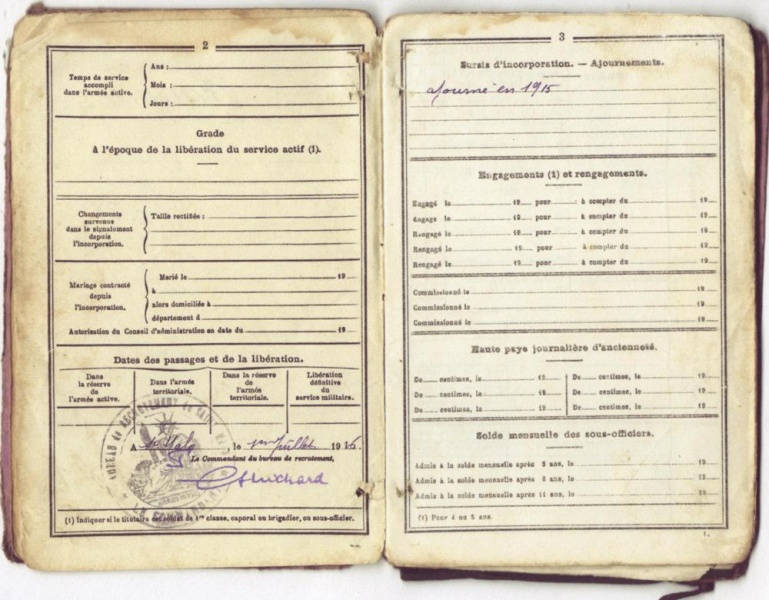 2
Temps de service
accompli
dans l'armée active.
Ans :
Mois :
Jours :
Grade
à l'époque de la libération du service actif (1).
Changements
survenus
dans le signalement
depuis
l'incorporation.
Taille rectifiée :
Mariage contracté
depuis
l'incorporation.
Marié le 19
à
alors domiciliée à
département d
Autorisation du Conseil d'administration en date du 19
Dates des passages et de la libération.
Dans
la réserve
de
l'armée active.
Dans l'armée
territoriale.
Dans la réserve
de
l'armée
territoriale.
Libération
définitive
du
service militaire.
A St Malo le 1er Juillet 1916
Le Commandant du bureau de recrutement,
BUREAU de RECRUTEMENT de
(1) Indiquer si le titulaire est soldat de 1re classe, caporal ou brigadier, ou sous-officier.
3
Sursis d'incorporation. — Ajournements.
Ajourné en 1915
Engagements (1) et rengagements.
Engagé le 19 pour : à compter du 19
Engagé le 19 pour à compter du 19
Rengagé le 19 pour à compter du 19
Rengagé le 19 pour à compter du 19
Rengagé le 19 pour à compter du 19
Commissionné le 19
Commissionné le 19
Commissionné le 19
Haute paye journalière d'ancienneté.
De centimes, le 19 De centimes, le 19
De centimes, le 19 De centimes, le 19
De centimes, le 19 De centimes, le 19
Solde mensuelle des sous-officiers.
Admis à la solde mensuelle après 5 ans, le 19
Admis à la solde mensuelle après 8 ans, le 19
Admis à la solde mensuelle après 11 ans, le 19
(1) Pour 4 ou 5 ans.
1.